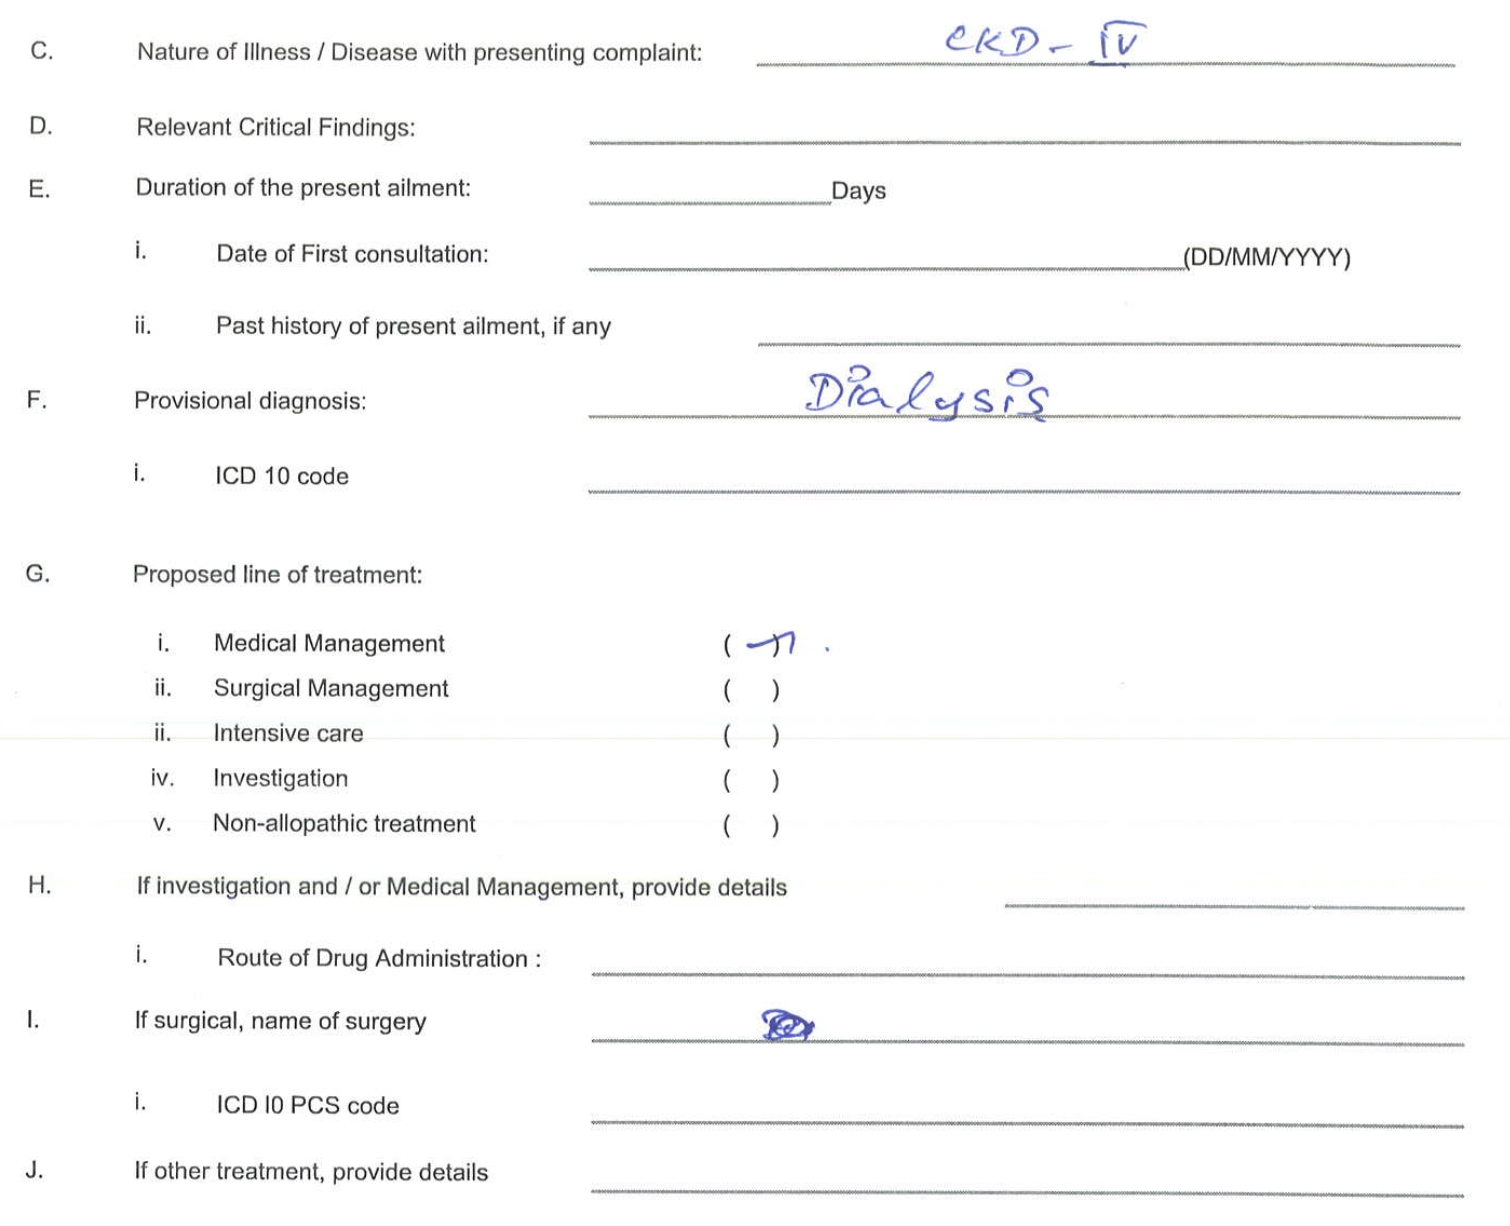 C. Nature of Illness / Disease with presenting complaint: CKD - IV
D. Relevant Critical Findings:
E. Duration of the present ailment: Days
i. Date of First consultation: (DD/MM/YYYY)
ii. Past history of present ailment, if any
F. Provisional diagnosis: Dialysis
i. ICD 10 code
G. Proposed line of treatment:
i. Medical Management ( )
ii. Surgical Management ( )
ii. Intensive care ( )
iv. Investigation ( )
v. Non-allopathic treatment ( )
H. If investigation and / or Medical Management, provide details
i. Route of Drug Administration :
I. If surgical, name of surgery
i. ICD I0 PCS code
J. If other treatment, provide details